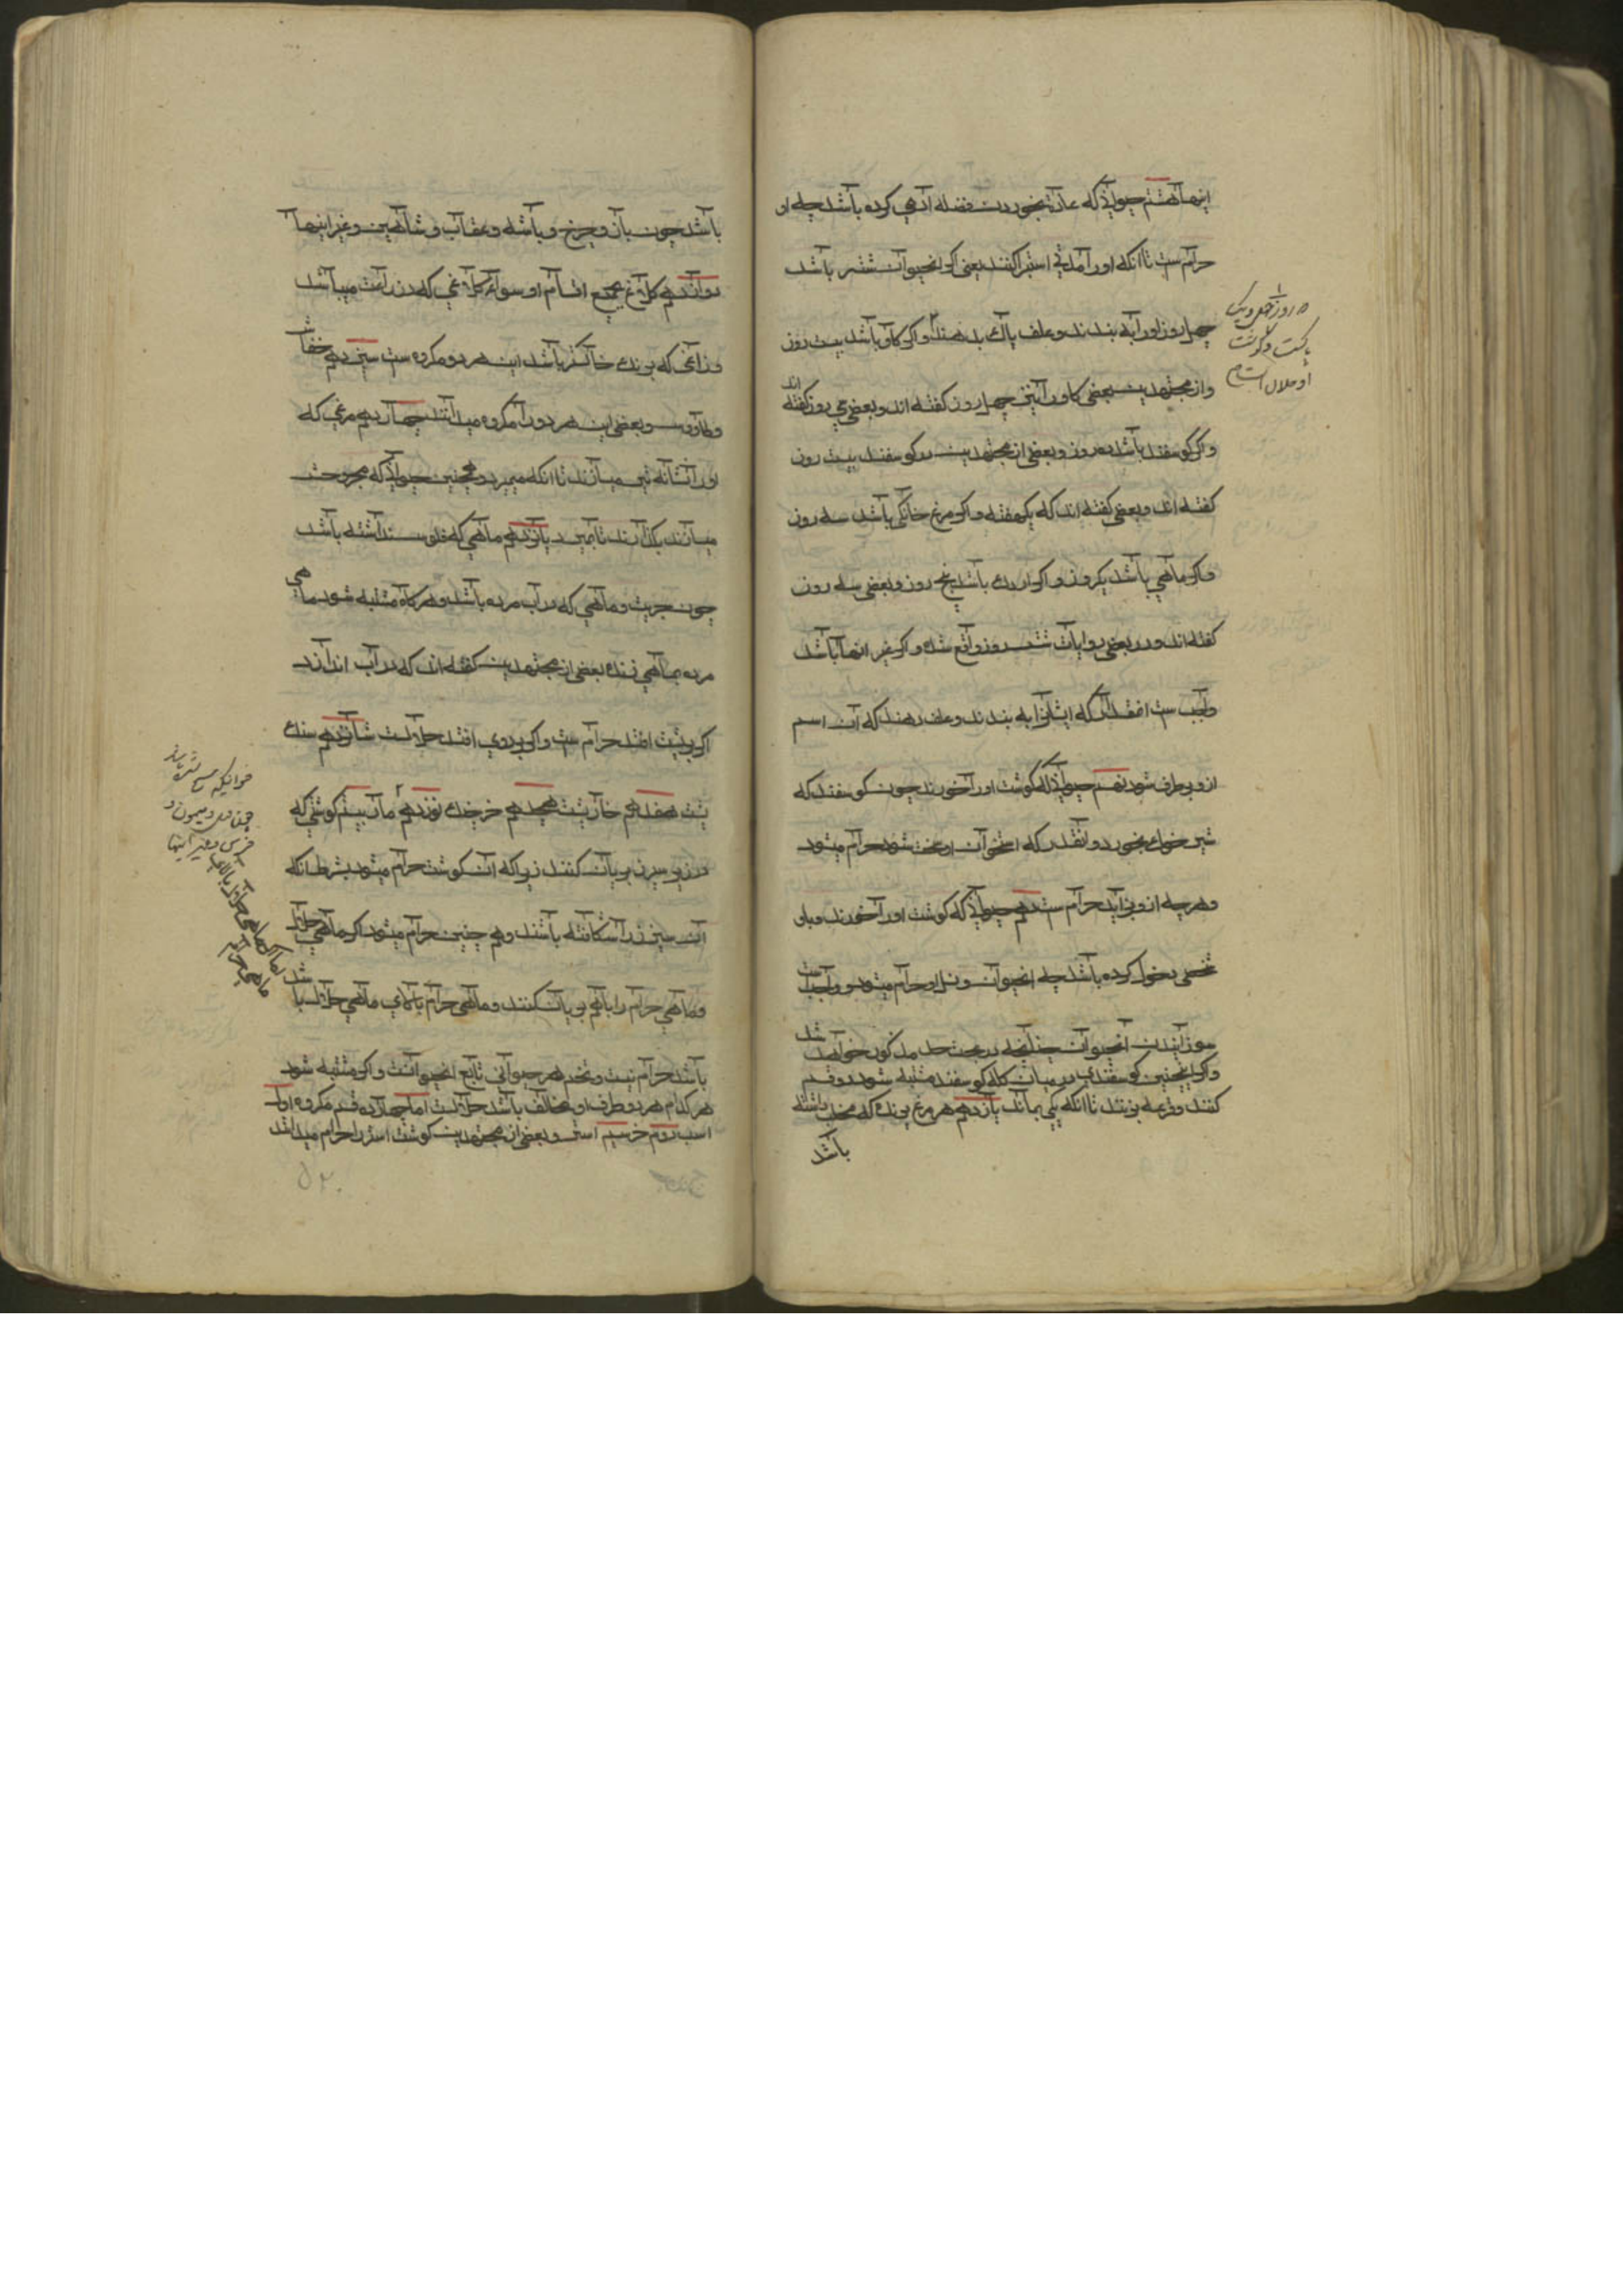 اینها هشتم حیوانی که عادت بخوردن فضله آدمی کرده باشد چه او
حرام ست تا انکه اورا مدتی استبرا کنند یعنی اگر انحیوان شتر باشد
چهل روز اورا به بندند و علف پاک بدهند و اگر کاو باشد بیست روز
و از مجتهدین بعضی کاو را نیز چهل روز گفته اند و بعضی سی روز گفته اند
و اگر کوسفند باشد ده روز و بعضی از مجتهدین در کوسفند بیست روز
گفته اند و بعضی گفته اند که یکهفته و اگر مرغ خانگی باشد سه روز
و اگر ماهی باشد یکروز و اگر اردک باشد پنج روز و بعضی سه روز
گفته اند و در بعضی روایات شش روز واقع شده و اگر غیر اینها باشد
واجب ست انمقدار که ایشانرا به بندند و علف دهند که آن اسم
ازو برطرف شود نهم حیوانی که گوشت اورا خورند چون گوسفند که
شیر خوک بخورد دانقدر که استخوان او سخت شود حرام میشود
و هرچه ازو زاید حرام ست دهم حیوانی که گوشت اورا خورند و باو
شخصی دخول کرده باشد چه انحیوان و نسل او حرام میشود و واجب است
سوزانیدن انحیوان چنانچه در بحث حد مذکور خواهد شد
و اگر اینچنین کوسفندی در میان گله کوسفند مشتبه شود دو قسم
کنند و قرعه بزنند تا انکه یکی بماند یازدهم هر مرغ پرنده که مخلب داشته
باشد
روز چهل ویک
پاکست و گوشت
او حلال است
باشد چون باز و چرخ و باشه و عقاب و شاهین و غیر اینها
دوازدهم کلاغ بجمیع اقسام او سوای کلاغی که در زراعت میباشد
و زاغی که برنگ خاکستر باشد این هر دو مکروه ست سیزدهم خفاش
و طاوس و بعضی این هر دورا مکروه میدانند چهاردهم مرغی که
اورا نشانه تیر میسازند تا انکه میمیرد و همچنین حیوانی که مجروحش
میسازند و میگذارند تا بمیرد پانزدهم ماهی که فلوس نداشته باشد
چون جریث و ماهی که در آب مرده باشد و هرکاه مشتبه شود ماهی
مرده بماهی زنده بعضی از مجتهدین گفته اند که در آب اندازند
اگر بر پشت افتد حرام ست و اگر بر روی افتد حلالست شانزدهم سنگ
پشت هفدهم خارپشت هجدهم خرچنگ نوزدهم مار بیستم گوشتی که
در زیر سپرز بریان کنند زیرا که ان گوشت حرام میشود بشرط انکه
ان سپرز را شکافته باشند و هم چنین حرام میشود اگر ماهی حلال
و ماهی حرام را باهم بریان کنند و ماهی حرام بالای ماهی حلال باشد
باشد حرام نیست و تخم هر حیوانی تابع انحیوانست و اگر مشتبه شود
هر کدام هر دو طرف او مخالف باشد حلالست اما چهارده قسم مکروه اول
اسب دوم خر سیم استر و بعضی از مجتهدین گوشت استر را حرام میدانند
اما اگر ماهی حلال بالای
ماهی حرام